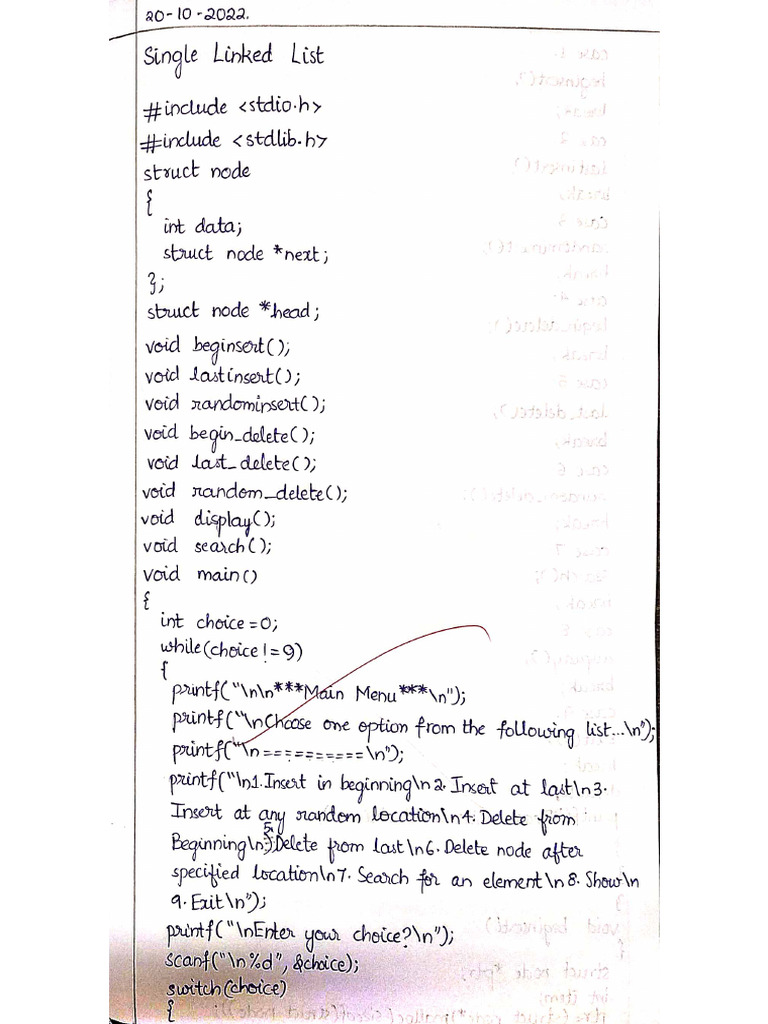 20-10-2022.
Single Linked List
#include <stdio.h>
#include <stdlib.h>
struct node
{
int data;
struct node *next;
};
struct node *head;
void beginsert();
void lastinsert();
void randominsert();
void begin_delete();
void last_delete();
void random_delete();
void display();
void search();
void main()
{
int choice=0;
while(choice!=9)
{
printf("\n\n***Main Menu***\n");
printf("\nChoose one option from the following list...\n");
printf("\n==========\n");
printf("\n1.Insert in beginning\n2.Insert at last\n3.
Insert at any random location\n4.Delete from
Beginning\n5.Delete from last\n6.Delete node after
specified location\n7.Search for an element\n8.Show\n
9.Exit\n");
printf("\nEnter your choice?\n");
scanf("\n%d", &choice);
switch(choice)
{